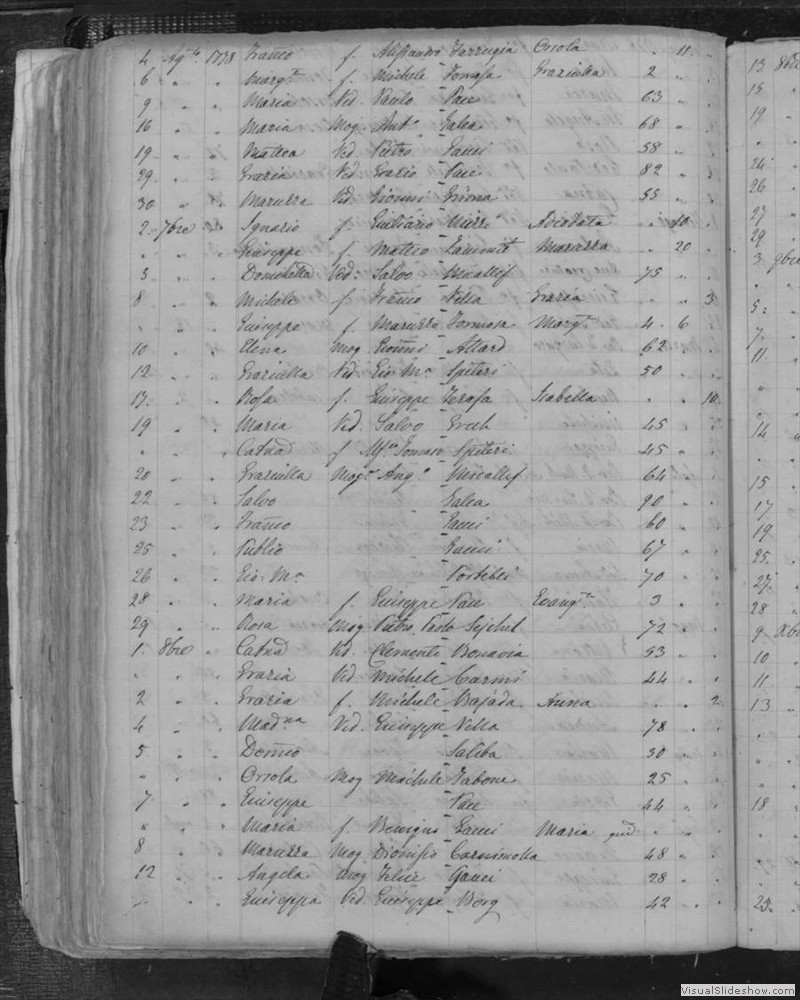 4 Agto. 1778 Franco f. Alessandro Farrugia Orsola . 11 .
6 " " Margta. f. Michele Formosa Graziulla 2 "
9 " " Maria Ved. Paulo Pace 63 "
16 " " Maria Mog. Anto. Galea 68 "
19 " " Mattea Ved. Pietro Gauci 58 "
29 " " Grazia Ved. Grazio Pace 82 "
30 " " Maruzza Ved. Gionni 55 "
2 7bre " Ignazio f. Giuliano Micci Adeodata . 10
" " " Giuseppe f. Matteo Zammit Maruzza " 20 "
3 " " Domenella Ved. Salvo Micallif 75 "
8 " " Michele f. Franco Vella Grazia " " 3
" " " Giuseppe f. Maruzzo Formosa Margta. 4 . 6
10 " " Elena Mog. Gionni Allard 62 "
12 " " Graziulla Ved. Gio: Ma. Spiteri 50 "
17 " " Rosa f. Giuseppe Isabella " " 10
19 " " Maria Ved. Salvo Grech 45 "
" " " Catnad f. Tomaso Spiteri 45 "
20 " " Graziulla Mog. Ang.o Micallif 64 "
22 " " Salvo Galea 90 "
23 " " Franco Gauci 60 "
25 " " Publio Gauci 67 "
26 " " Gio: Ma. Portelli 70 "
28 " " Maria f. Giuseppe Pace Evangta. 3 "
29 " " Rosa Mog. Pietro Paolo 72 "
1. 8bre " Catnad Ved. Clemente Bonavia 53 "
" " " Grazia Ved. Michele 44 "
2 " " Grazia f. Michele Bajada Anna . . 2
4 " " Madna Ved. Giuseppe Vella 78 "
5 " " Domco Saliba 50 "
" " " Orsola Mog. Michele Tabone 25 "
7 " " Giuseppe Pace 44 "
" " " Maria f. Benigno Gauci Maria " "
8 " " Maruzza Mog. Dionisio 48 "
12 " " Angela Mog. Felice Gauci 28 "
" " " Giuseppa Ved. Giuseppe Borg 42 "
13 8bre
15
19
24
26
27
29
3 9bre
5
7
11
14
15
17
19
25
27
28
9 Xbre
10
11
13
18
25
VisualSlideshow.com